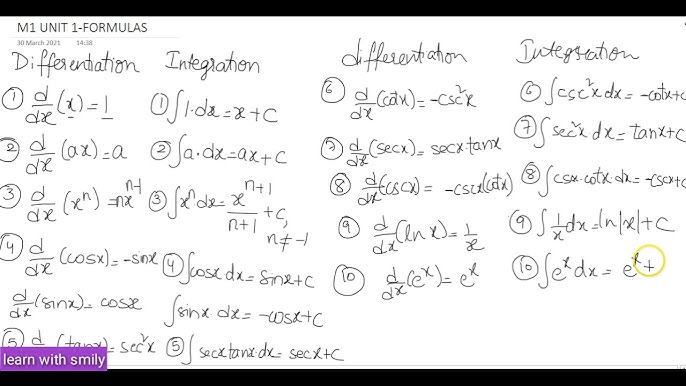 M1 UNIT 1-FORMULAS
30 March 2021 14:38
Differentiation Integration
① d/dx (x) = 1 ① ∫1·dx = x + C
② d/dx (ax) = a ② ∫a·dx = ax + C
③ d/dx (xⁿ) = nxⁿ⁻¹ ③ ∫xⁿdx = xⁿ⁺¹/n+1 + C, n ≠ -1
④ d/dx (cosx) = -sinx ④ ∫cosx·dx = sinx + C
d/dx (sinx) = cosx ∫sinx·dx = -cosx + C
⑤ d (tanx) = sec²x ⑤ ∫secxtanx·dx = secx + C
differentiation Integration
⑥ d/dx (cotx) = -csc²x ⑥ ∫csc²x dx = -cotx + C
⑦ d/dx (secx) = secxtanx ⑦ ∫sec²x dx = tanx + C
⑧ d/dx (cscx) = -cscx(cotx) ⑧ ∫cscx·cotx·dx = -cscx + C
⑨ d/dx (lnx) = 1/x ⑨ ∫1/x dx = ln|x| + C
⑩ d/dx (eˣ) = eˣ ⑩ ∫eˣ dx = eˣ +
learn with smily